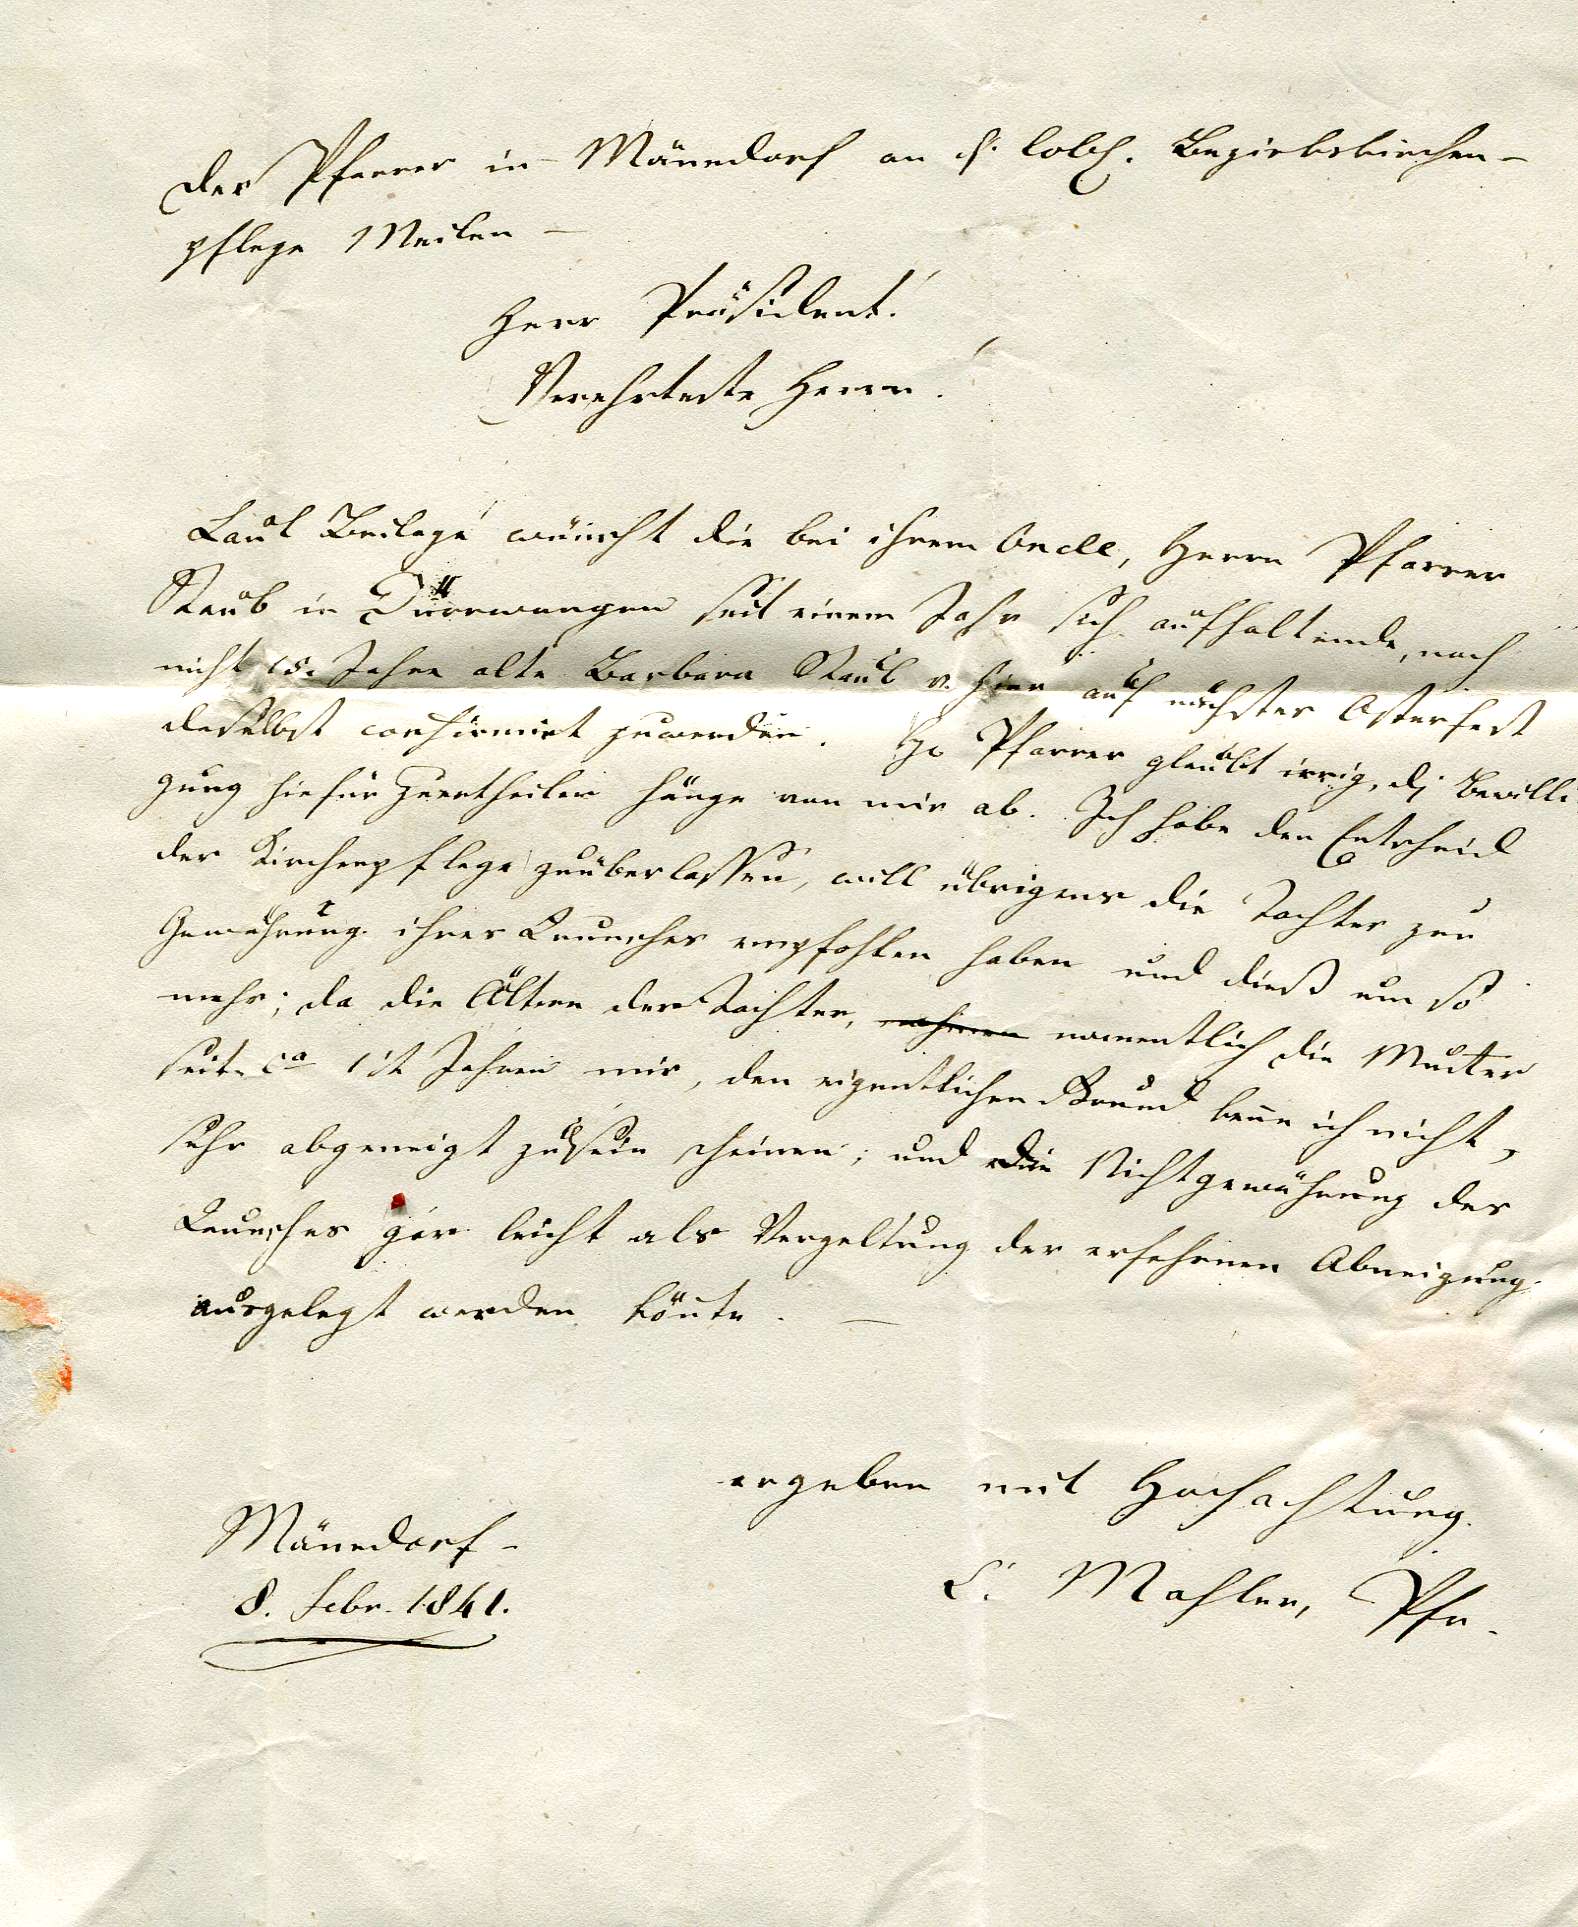 Der Pfarrer in Mänedorf an d. löbl. Bezirkskirchen-
pflege Meilen –
Herr Präsident!
Verehrteste Herrn!
Laut Beilage wünscht die bei ihrem Oncle, Herrn Pfarrer
Staub in Dürrwangen seit einem Jahr sich aufhaltende, noch
nicht 15. Jahre alte Barbara Staub v. hier auf nächstes Osterfest
daselbst confirmirt zuwerden. Hr Pfarrer glaubt irrig, die Bewilli
gung hiefür zuertheilen hänge von mir ab. Ich habe den Entscheid
der Kirchenpflege zuüberlassen, will übrigens die Tochter zur
Gewährung ihres Wunsches empfohlen haben und dieß um so
mehr; da die Ältern der Tochter, namentlich die Mutter
seit ca 1½ Jahren mir, den eigentlichen Grund kene ich nicht,
sehr abgeneigt zusein scheinen; und die Nichtgewährung des
Wunsches gar leicht als Vergeltung der erfahrnen Abneigung
ausgelegt werden könte. –
ergeben mit Hochachtung.
Mänedorf –
8. Febr. 1841.
C. Mahler, Pfr.